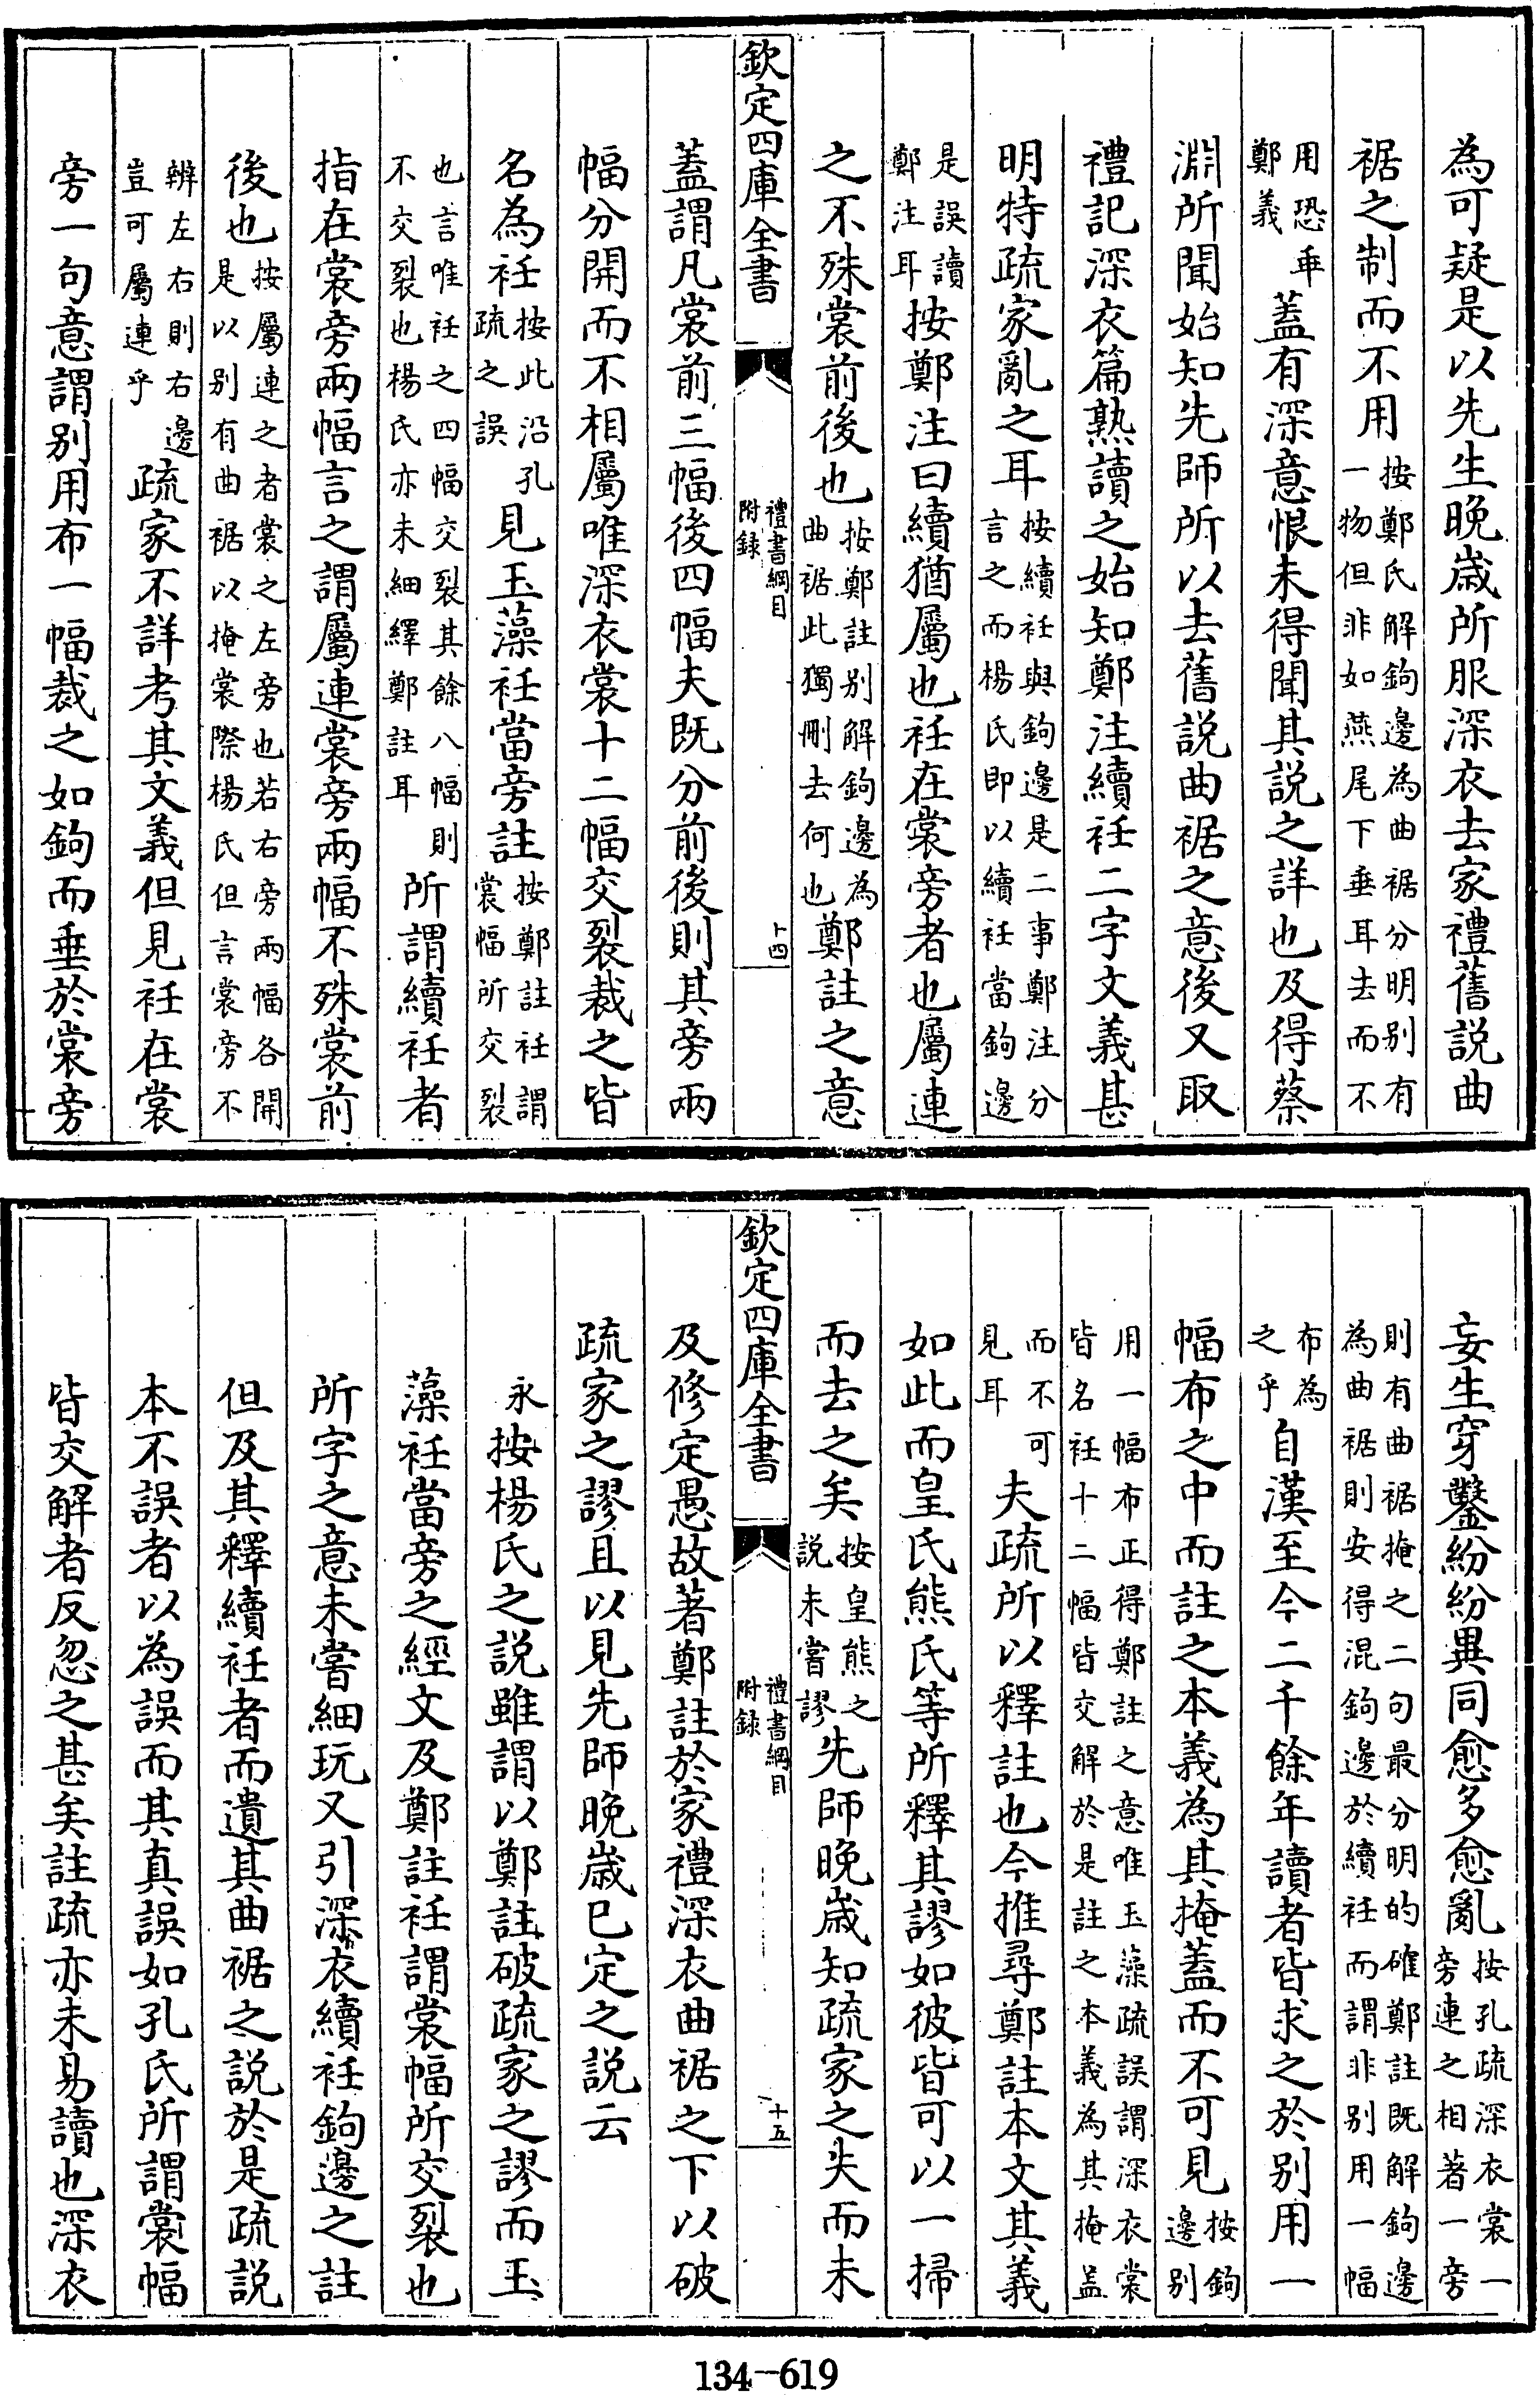 為可疑是以先生晚歲所服深衣去家禮舊説曲
裾之制而不用按鄭氏解鉤邊為曲裾分明别有一物但非如燕尾下垂耳去而不
用恐乖鄭義蓋有深意恨未得聞其説之詳也及得蔡
淵所聞始知先師所以去舊説曲裾之意後又取
禮記深衣篇熟讀之始知鄭注續衽二字文義甚
明特疏家亂之耳按續衽與鉤邊是二事鄭注分言之而楊氏即以續衽當鉤邊
是誤讀鄭注耳按鄭注曰續猶屬也衽在裳旁者也屬連
之不殊裳前後也按鄭註别解鉤邊為曲裾此獨刪去何也鄭註之意
欽定四庫全書
禮書綱目
附録
十四
蓋謂凡裳前三幅後四幅夫既分前後則其旁兩
幅分開而不相屬唯深衣裳十二幅交裂裁之皆
名為衽按此沿孔疏之誤見玉藻衽當旁註按鄭註衽謂裳幅所交裂
也言唯衽之四幅交裂其餘八幅則不交裂也楊氏亦未細繹鄭註耳所謂續衽者
指在裳旁兩幅言之謂屬連裳旁兩幅不殊裳前
後也按屬連之者裳之左旁也若右旁兩幅各開是以别有曲裾以掩裳際楊氏但言裳旁不
辨左右則右邊豈可屬連乎疏家不詳考其文義但見衽在裳
旁一句意謂别用布一幅裁之如鉤而垂於裳旁
妄生穿鑿紛紛異同愈多愈亂按孔疏深衣裳一旁連之相著一旁
則有曲裾掩之二句最分明的確鄭註既解鉤邊為曲裾則安得混鉤邊於續衽而謂非别用一幅
布為之乎自漢至今二千餘年讀者皆求之於别用一
幅布之中而註之本義為其掩蓋而不可見按鉤邊别
用一幅布正得鄭註之意唯玉藻疏誤謂深衣裳皆名衽十二幅皆交解於是註之本義為其掩盖
而不可見耳夫疏所以釋註也今推尋鄭註本文其義
如此而皇氏熊氏等所釋其謬如彼皆可以一掃
而去之矣按皇熊之説未嘗謬先師晚歲知疏家之失而未
欽定四庫全書
禮書綱目
附録
十五
及修定愚故著鄭註於家禮深衣曲裾之下以破
疏家之謬且以見先師晚歲已定之説云
永按楊氏之説雖謂以鄭註破疏家之謬而玉
藻衽當旁之經文及鄭註衽謂裳幅所交裂也
所字之意未嘗細玩又引深衣續衽鉤邊之註
但及其釋續衽者而遺其曲裾之説於是疏説
本不誤者以為誤而其真誤如孔氏所謂裳幅
皆交解者反忽之甚矣註疏亦未易讀也深衣
134-619